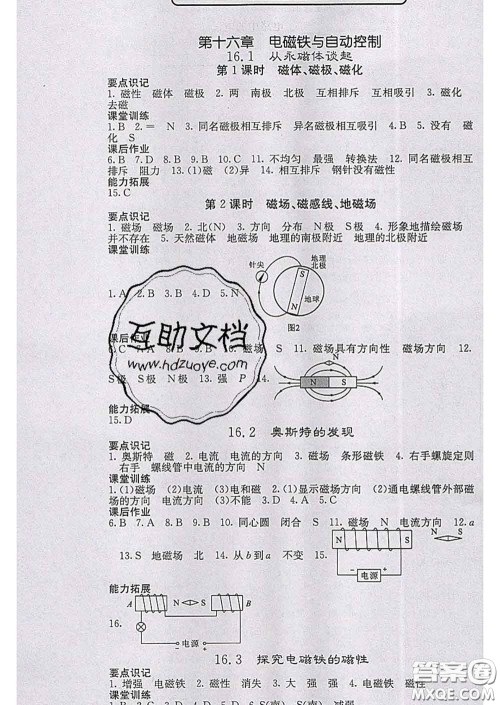 第十六章 电磁铁与自动控制
16.1 从永磁体谈起
第1课时 磁体、磁极、磁化
要点识记
1. 磁性 磁体 磁极 2. 两 南极 北极 互相排斥 互相吸引 3. 磁化
去磁
课堂训练
1. B 2. = N 3. 同名磁极相互排斥 异名磁极相互吸引 4. B 5. 没有 磁
化 S
课后作业
6. B 7. D 8. B 9. B 10. C 11. 不均匀 最强 转换法 12. 同名磁极相互排
斥 阻力 13. 磁 (2)异 14. 相互排斥 钢针没有磁性
能力拓展
15. C
第2课时 磁场、磁感线、地磁场
要点识记
1. 磁场 磁场 2. 北(N) 3. 方向 分布 N极 S极 4. 形象地描绘磁场
并不存在 5. 天然磁体 地磁场 地理的南极附近 地理的北极附近
课堂训练
针尖
地理
北极
S
N
地球
图2
1. A 2. B 3. B 4. D 5. N
课后作业
6. C 7. A 8. B 9. 磁场 S 11. 磁场具有方向性 磁场方向 12.
S极 S极 N极 13. 强 P 14.
N S
能力拓展
15. D
16.2 奥斯特的发现
要点识记
1. 奥斯特 磁 2. 电流 电流的方向 3. 磁场 条形磁铁 4. 右手螺旋定则
右手 螺线管中电流的方向 N
课堂训练
1. (1)磁场 (2)电流 (3)电和磁 2. (1)显示磁场方向 (2)通电螺线管外部磁
场的方向 电流方向 3. (2)不能 4. B 5. D
课后作业
6. B 7. B 8. D 9. A 10. 同心圆 闭合 S 11. 磁场 N 电流方向 12. a
13. S 地磁场 北 14. 从b到a 不变 15.
N S
电源
能力拓展
16.
A N S B
电源
16.3 探究电磁铁的磁性
要点识记
1. 增强 电磁铁 2. 磁性 消失 3. 大 强 强 4. 电磁铁
课堂训练
互助文档
www.hdzuoye.com
答案圈
MXQE.COM